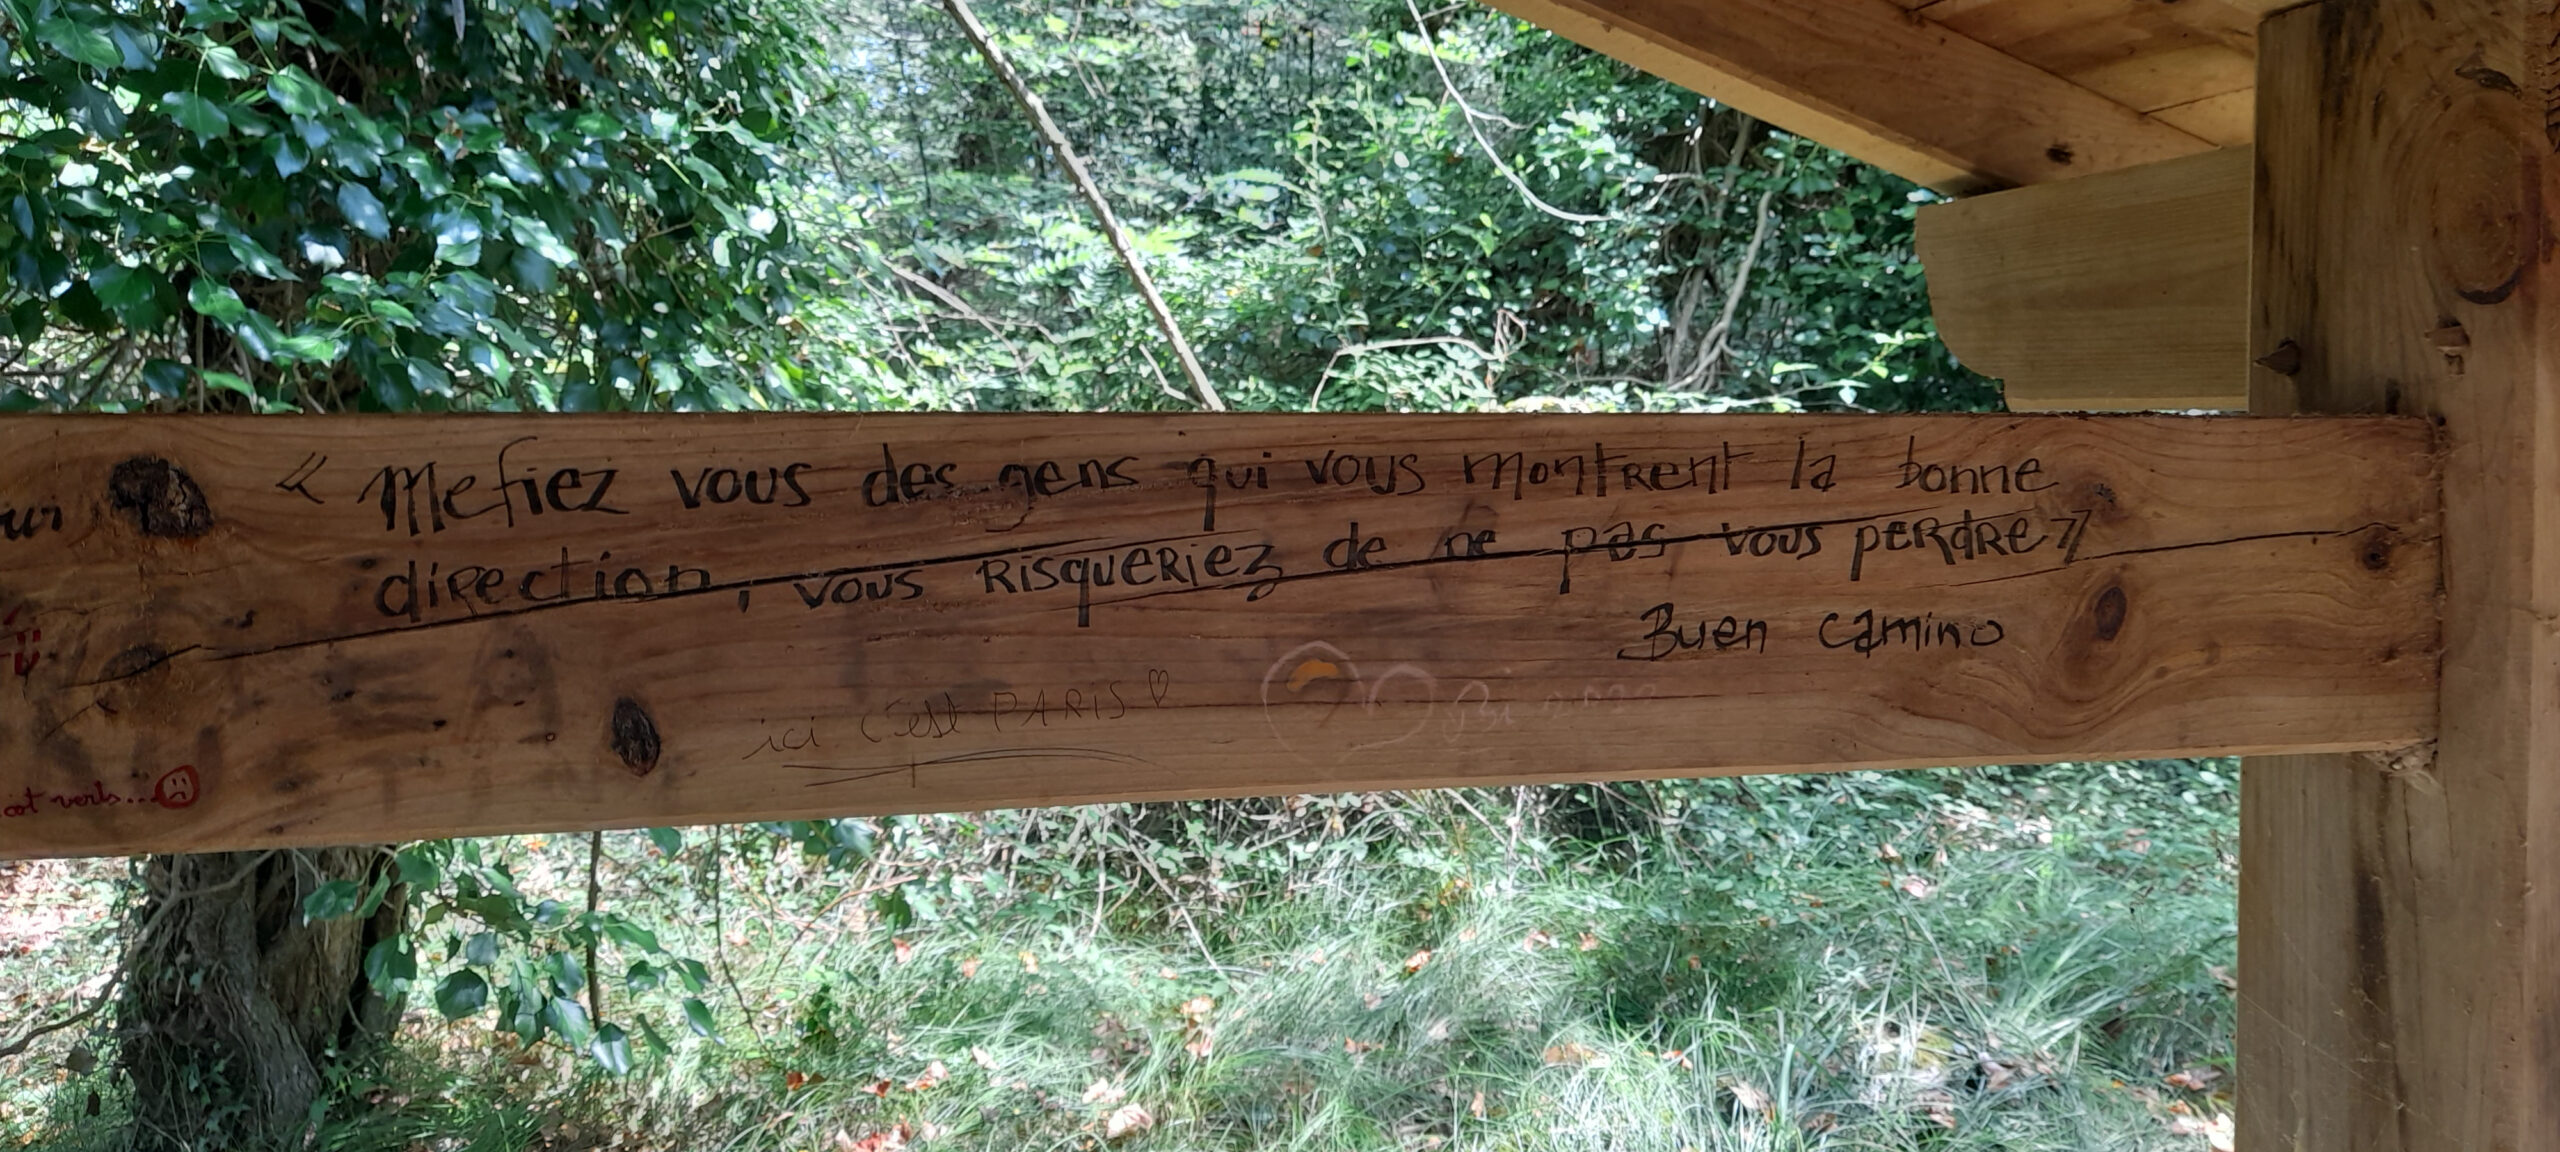 « Mefiez vous des gens qui vous montrent la bonne
direction, vous risqueriez de ne pas vous perdre »
Buen camino
ici c'est PARIS ♡
verts...